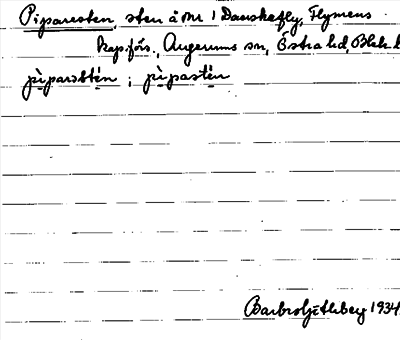 Piparesten, sten å nr 1 Danskafly, Flymens
kap.förs., Augerums sn, Östra hd, Blek. l
pìparstén ; pìpastén
Barbro Söderberg 1934.